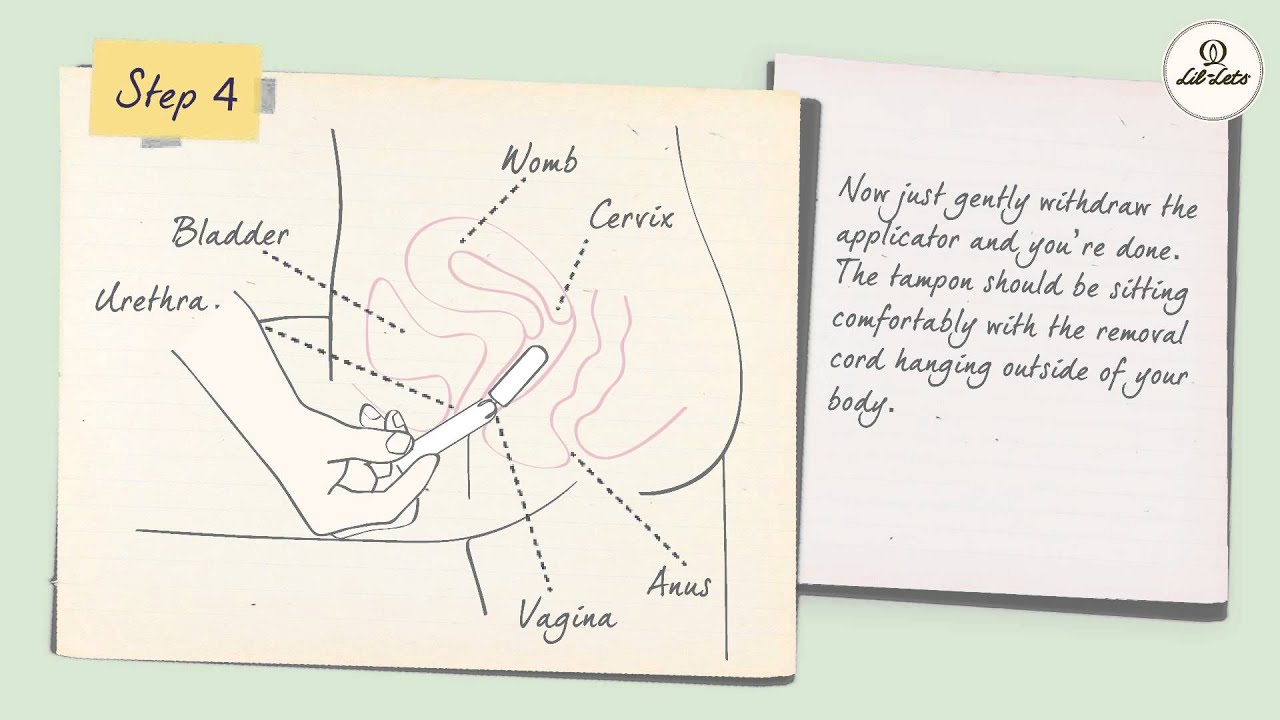 Step 4
Lil-Lets
Womb
Cervix
Bladder
Urethra.
Anus
Vagina
Now just gently withdraw the
applicator and you're done.
The tampon should be sitting
comfortably with the removal
cord hanging outside of your
body.